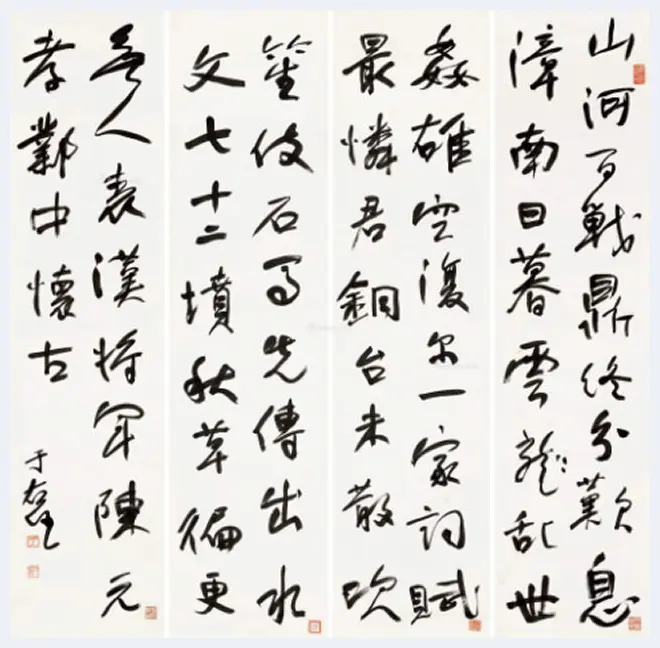 山河百戰鼎終分歎息
漳南日暮雲龍乱世
姦雄空復尔一家詞賦
最憐君銅台未散吹
笙伎石馬先傳出水
文七十二墳秋草徧更
無人表漢將軍陳元
孝鄴中懷古
于右任